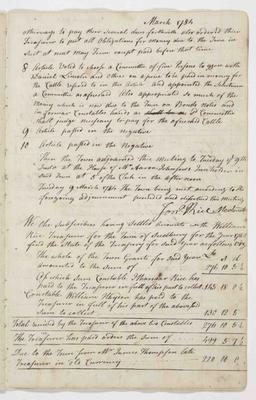 March 1784
otherways to pay their several dues forthwith also ordered their
Treasurer to put all Obligations for Money due to the Town in
suit at next May Term except paid before that time
8 Article Voted to chose a Committee of five Persons to agree with
Daniel Lincoln and others on a price to be paid in money for
the Cattle refered to in this Article and appointed the Selectmen
a Committee as aforesaid Also appropriated so much of the
Money which is now due to the Town on Bonds notes and
in former Constables hands as said Committee
shall judge necessary to pay for the aforesaid Cattle
9 Article passed in the negative
10 Article passed in the Negative
Then the Town adjourned this meeting to Tuesday ye 9th
Inst at the House of Mr Aaron Johnsons Innholder in
said Town at 3 of the Clock in the after noon
Tuesday 9 March 1784 The Town being met according to the
foregoing adjournment proceeded and dissolved this meeting
Jona Rice Moderator
We the subscribers having Settled accounts with William
Rice Treasurer for the Town of Sudbury for the year
find the State of the Treasury for said year as follows viz
The whole of the Town Grants for said Year
amounted to the Sum of 276 10 5
of which sum Constable Rice has
paid to the Treasurer in full of his part to collect 143
Constable William Hagger has paid to the
Treasurer in full of his part of the above said
Sum to collect 132 12 5
Total received by the Treasurer of the above two Constables 276 10 5
The Treasurer has paid orders the sum of 499
Due to the Town from Mr James Thompson late
Treasurer in old Currency 220 10